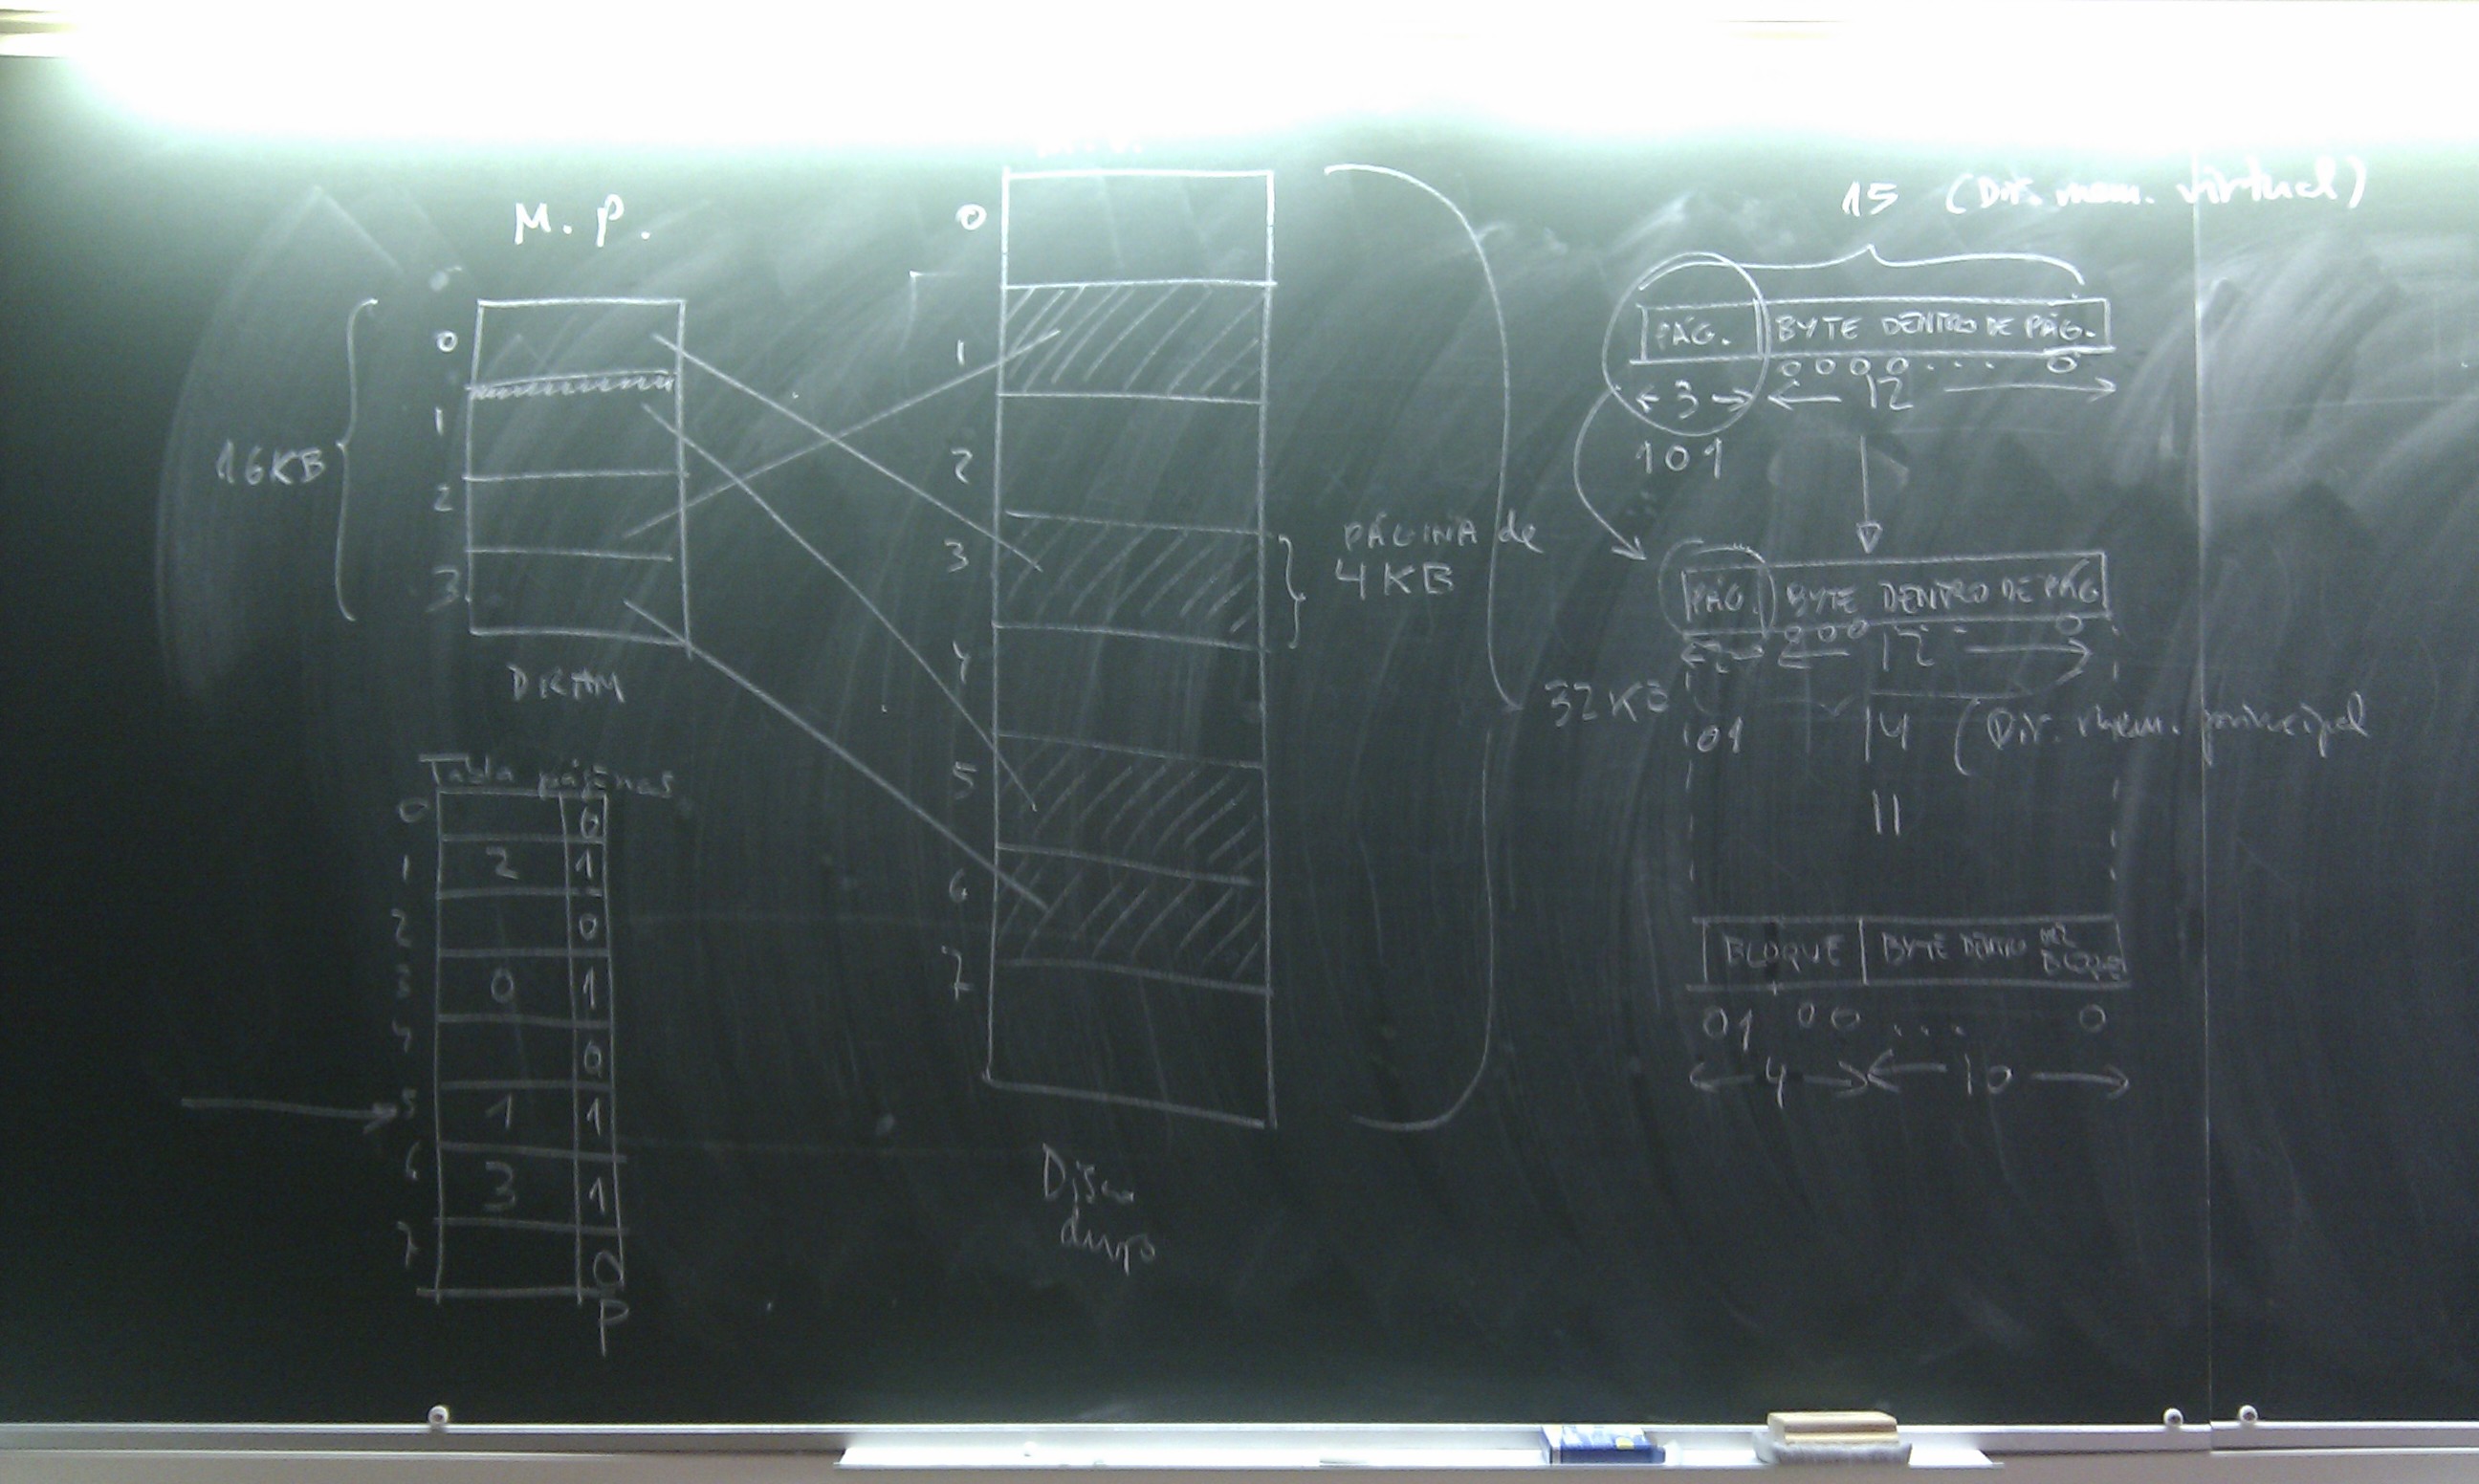 M. P.
0
1
2
3
16KB
DRAM
Tabla páginas
0 0
1 2 1
2 0
3 0 1
4 0
5 1 1
6 3 1
7 0
P
0
1
2
3
4
5
6
7
PÁGINA de
4KB
32 KB
Disco
duro
15 (Dir. mem. virtual)
PÁG. BYTE DENTRO DE PÁG.
0000... 0
3 12
101
PÁG. BYTE DENTRO DE PÁG
000.. 0
2 12
01 14 (Dir. mem. principal
BLOQUE BYTE DENTRO DEL BLOQUE
01 00 ... 0
4 10